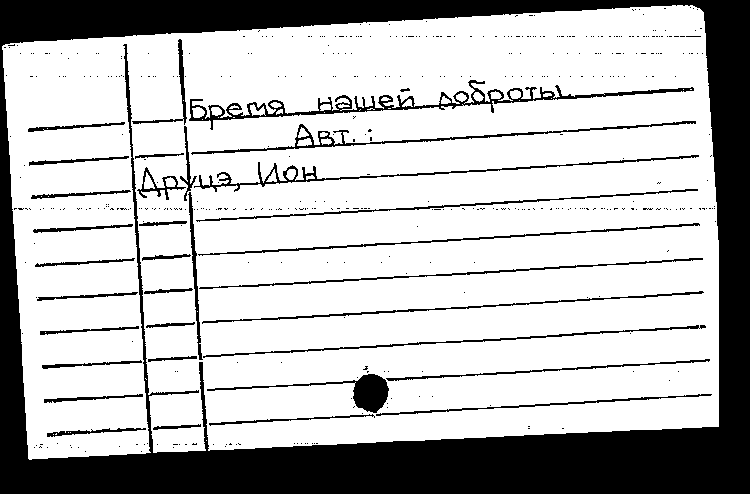 Бремя нашей доброты.
Авт.:
Друцэ, Ион